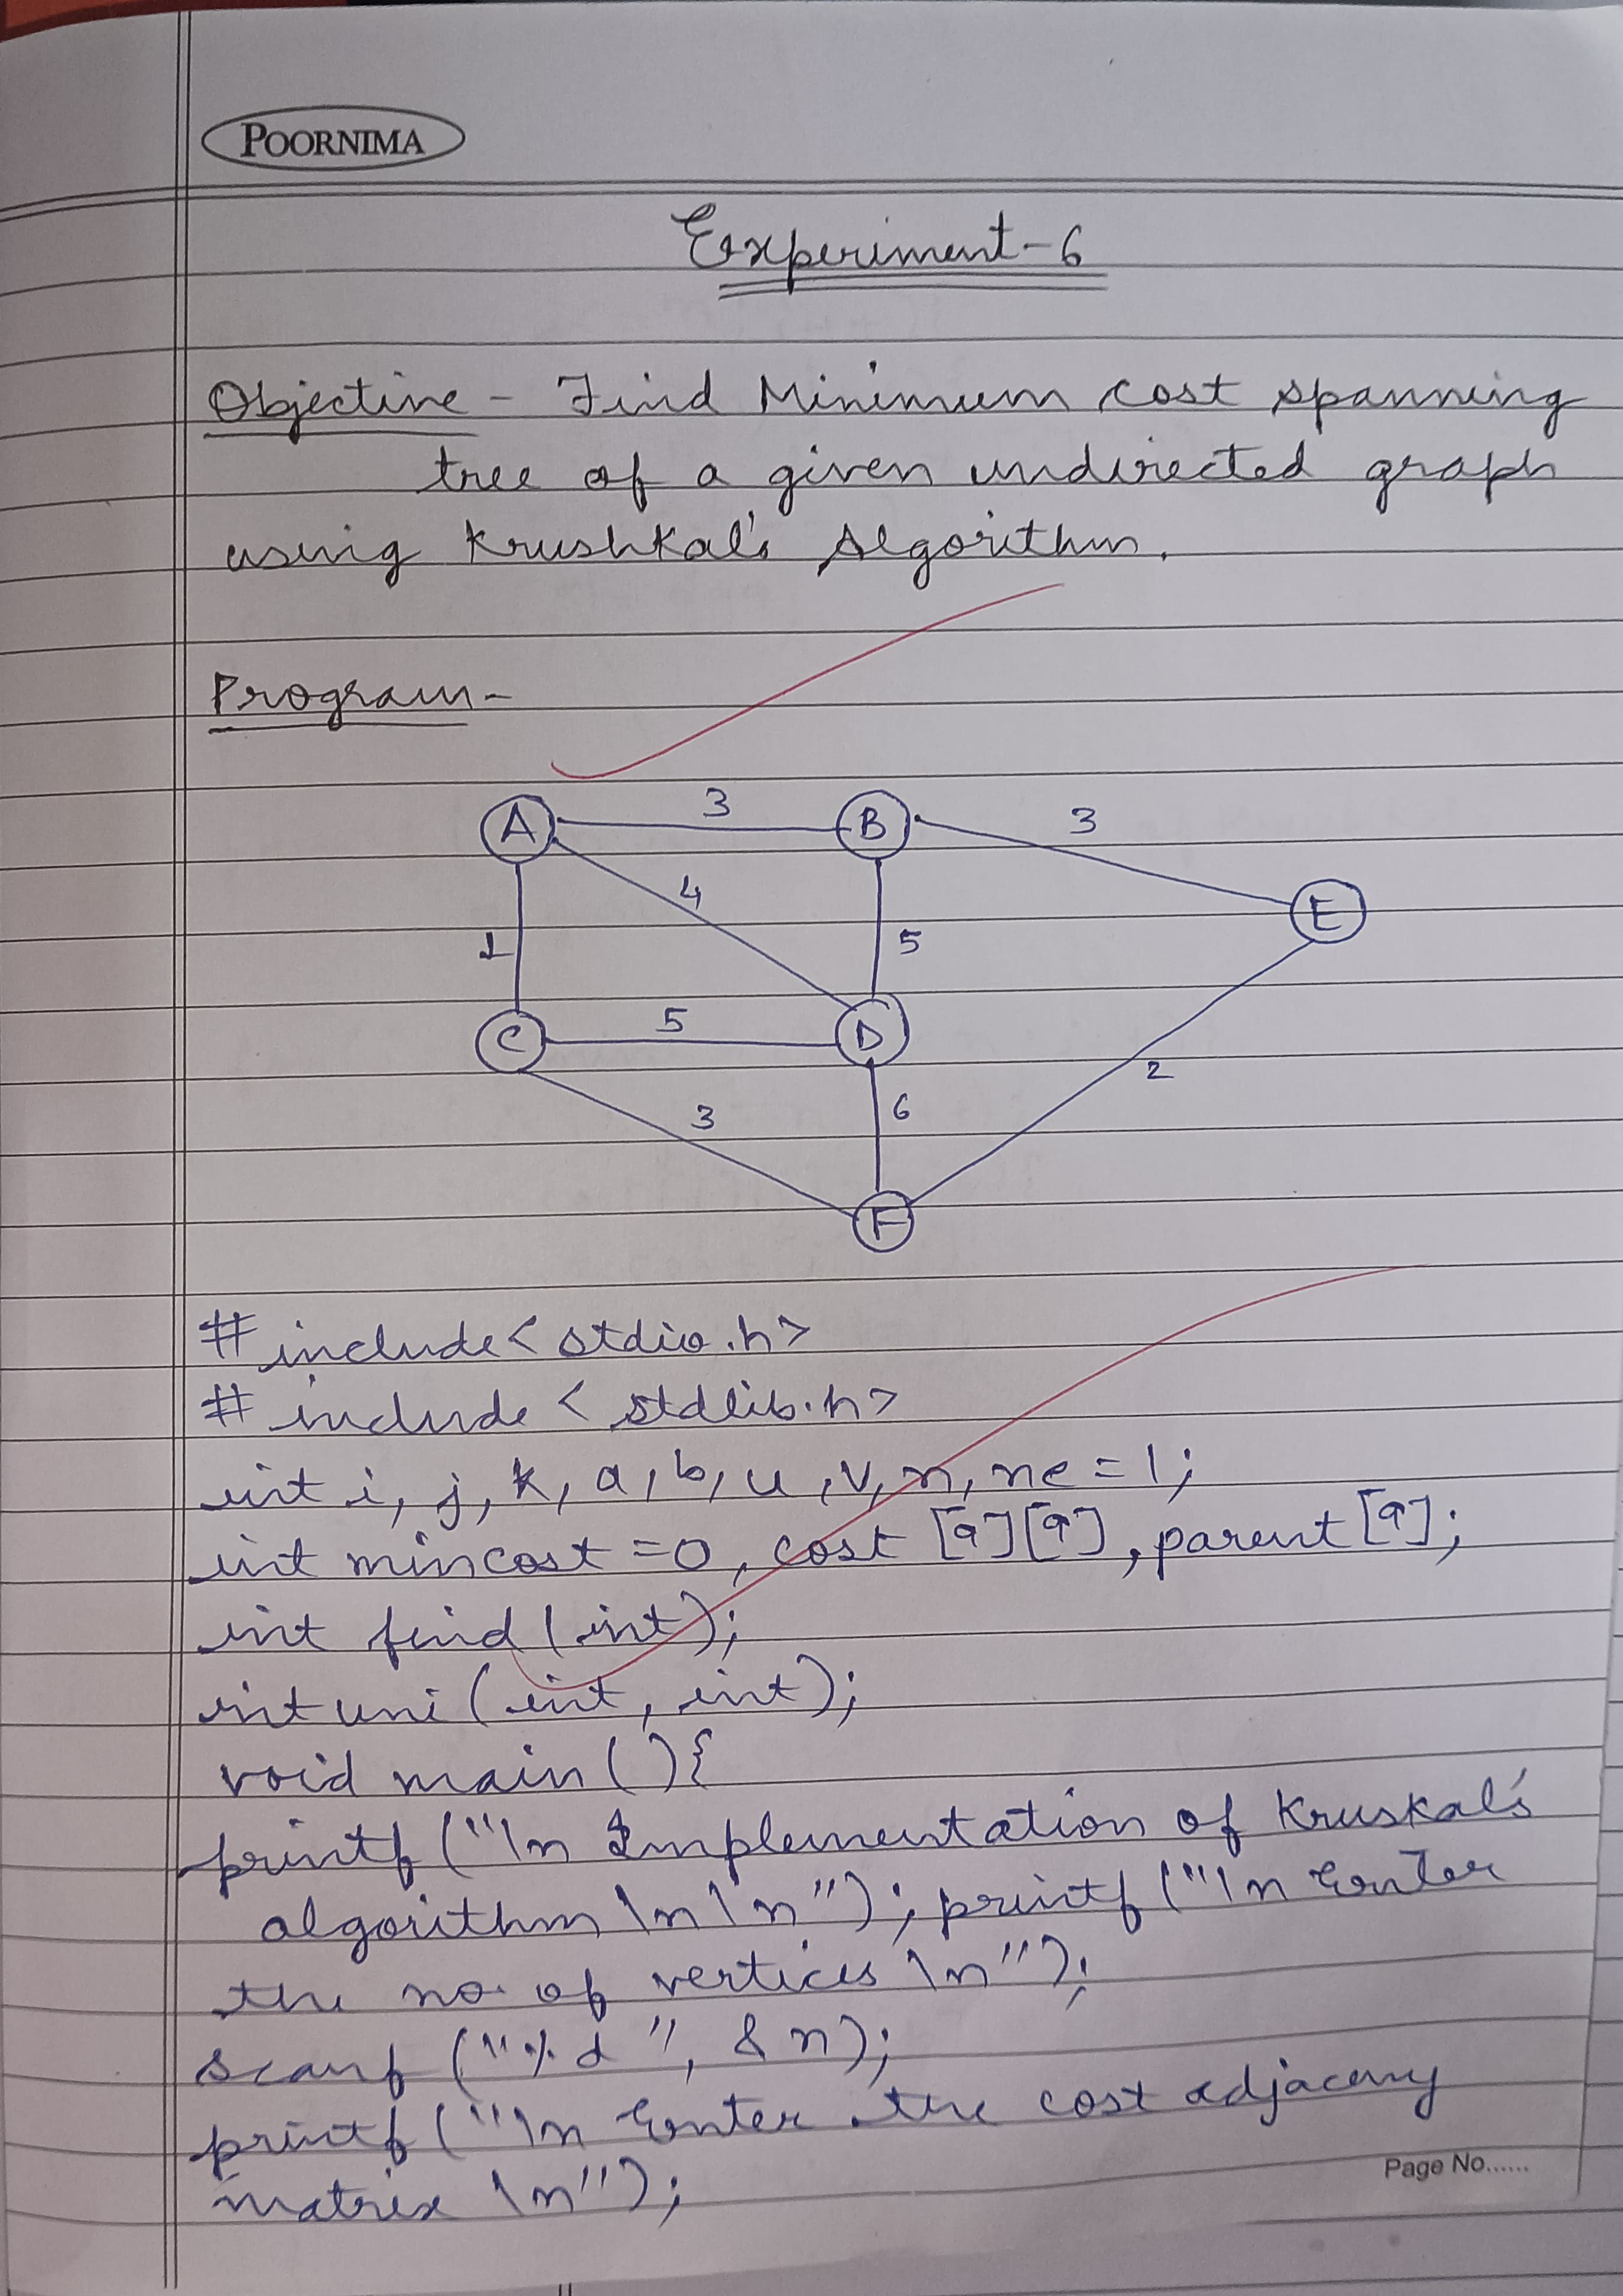 POORNIMA
Experiment-6
Objective - Find Minimum cost spanning
tree of a given undirected graph
using Krushkal's Algorithm.
Program-
A 3 B 3
4
E
1 5
C 5 D
2
3 6
F
#include< stdio.h>
# include < stdlib.h>
int i, j, k, a, b, u, v, n, ne = 1;
int mincost = 0, cost [9][9], parent [9];
int find (int);
int uni (int, int);
void main () {
printf ("\n Implementation of Kruskal's
algorithm \n \n"); printf ("\n Enter
the no. of vertices \n");
scanf ("%d", &n);
printf ("\n Enter the cost adjacency
matrix \n");
Page No......